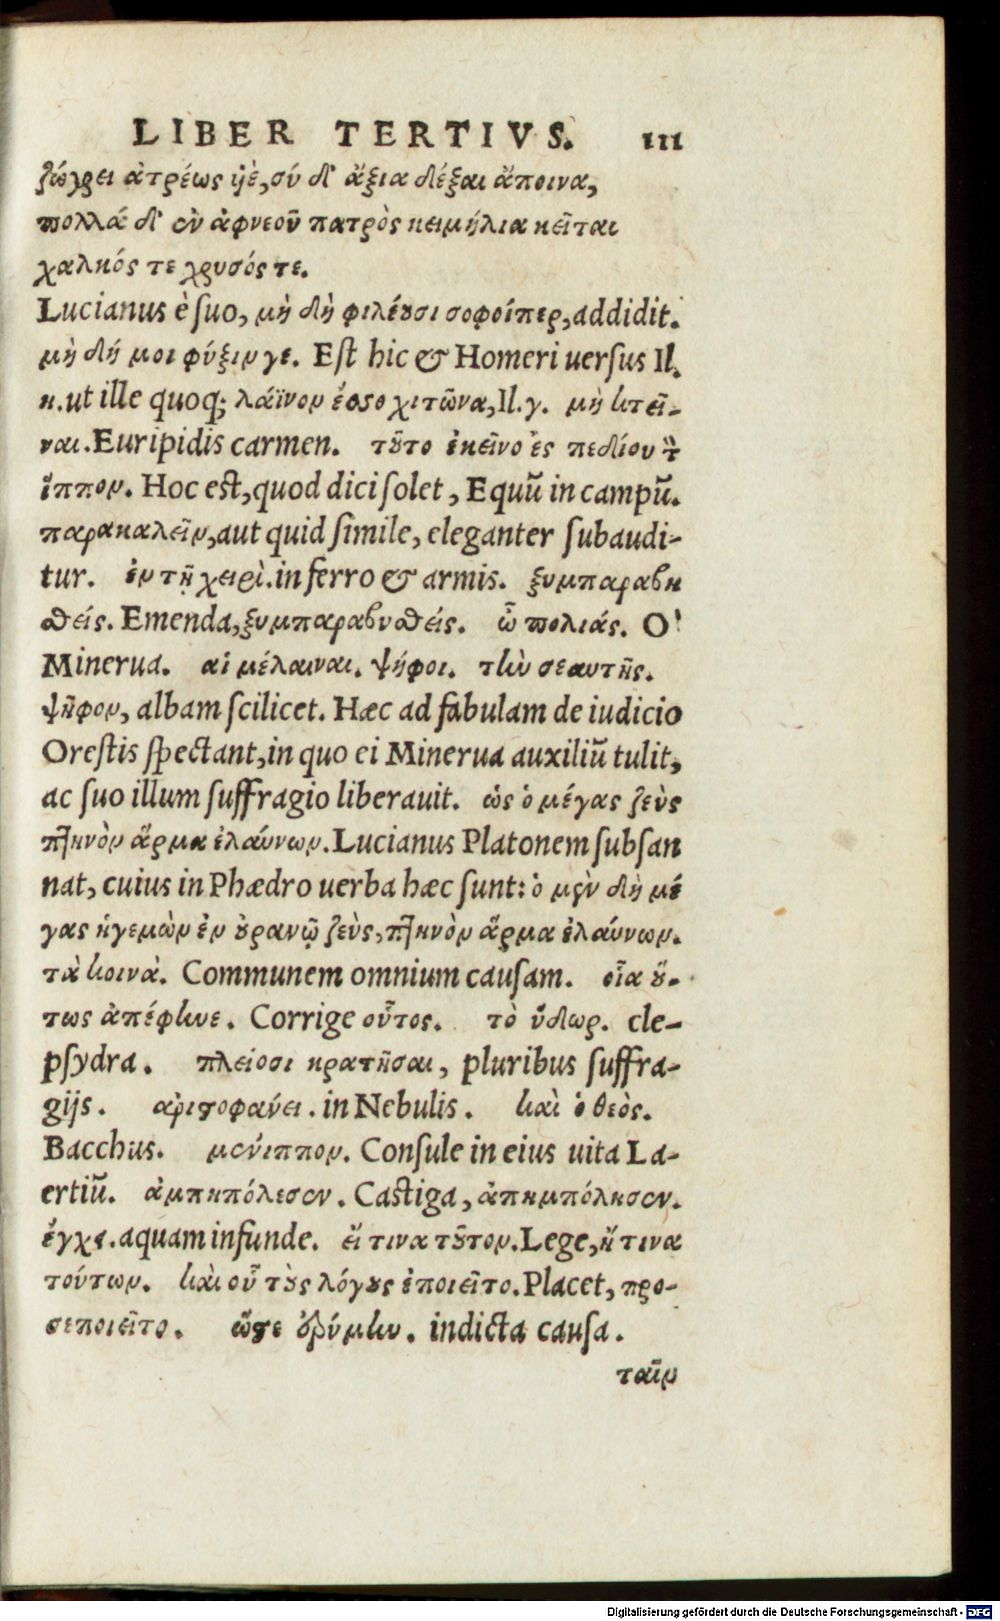 LIBER TERTIVS. 111
ζώγρει ἀτρέως ὑὲ, σύ δ' ἄξια δέξαι ἄποινα,
πολλά δ' ἐν ἀφνεοῦ πατρὸς κειμήλια κεῖται
χαλκός τε χρυσός τε.
Lucianus è ſuo, μὴ δὴ φιλέουσι σοφοίπερ, addidit.
μὴ δή μοι φύξιν γε. Eſt hic & Homeri uerſus Il.
κ. ut ille quoq; λάϊνον ἕσσο χιτῶνα, Il. γ. μὴ κτεῖ-
ναι. Euripidis carmen. τοῦτο ἐκεῖνο ἐς πεδίον τ̃
ἵππον. Hoc eſt, quod dici ſolet, Equũ in campũ.
παρακαλεῖν, aut quid ſimile, eleganter ſubaudi-
tur. ἐν τῇ χειρὶ. in ferro & armis. ξυμπαραβη
θείς. Emenda, ξυμπαραβυθείς. ὦ πολιάς. O'
Minerua. αἱ μέλαιναι. ψήφοι. τὴν σεαυτῆς.
ψῆφον, albam ſcilicet. Hæc ad fabulam de iudicio
Oreſtis ſpectant, in quo ei Minerua auxiliũ tulit,
ac ſuo illum ſuffragio liberauit. ὡς ὁ μέγας ζεὺς
πτηνὸν ἅρμα ἐλαύνων. Lucianus Platonem ſubſan
nat, cuius in Phædro uerba hæc ſunt: ὁ μὲν δὴ μέ
γας ἡγεμὼν ἐν οὐρανῷ ζεὺς, πτηνὸν ἅρμα ἐλαύνων.
τὰ κοινὰ. Communem omnium cauſam. οἷα οὕ-
τως ἀπέφηνε. Corrige οὗτος. τὸ ὕδωρ. cle-
pſydra. πλείοσι κρατῆσαι, pluribus ſuffra-
gijs. ἀριστοφάνει. in Nebulis. καὶ ὁ θεὸς.
Bacchus. μένιππον. Conſule in eius uita La-
ertiũ. ἀμπηπόλεσεν. Caſtiga, ἀπημπόλησεν.
ἔγχει. aquam infunde. εἴ τινα τοῦτον. Lege, ἤ τινα
τούτων. καὶ οὗ τοὺς λόγους ἐποιεῖτο. Placet, προ-
σεποιεῖτο. ὥστε ἐρήμην. indicta cauſa.
ταῖν
Digitalisierung gefördert durch die Deutsche Forschungsgemeinschaft - DFG